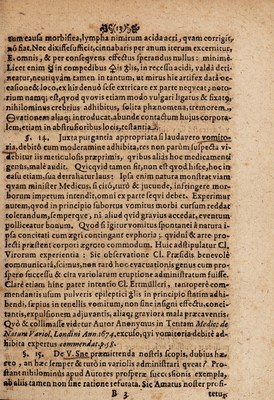 (13)
tum causa morbifica, lympha nimirum acida aeri, quam corrigit,
nō fiat. Nec dixisse sufficit, cinnabaris per anum iterum excernitur,
E. omnis, & per conseqvens effectus sperandus nullus: minimè.
Licet enim § in compedibus ♀is ♃lis, in recessu acidi, valdè deti-
neatur, neutiqvàm tamen in tantum, ut mirus hic artifex datâ oc-
casione & loco, ex his denuò sese extricare ex parte neqveat; noto-
rium namq; est, qvod qvovis etiam modo vulgari ligatus & fixatq,
nihilominus crebrius adhibitus, solita phænomena, tremorem,
Salivationem aliaq; introducat, abunde contactum hujus corpora-
lem, etiam in abstrusioribus locis, testantia.
§. 14. Juxta purgantia appropriata si laudavero vomito-
ria, debitò cum moderamine adhibita, res non parùm suspecta vi-
debitur iis meticulosis præprimis, qvibus aliàs hoc medicamenti
genus, malè audit. Qvicqvid tamen sit, non est qvod hisce, hoc in
casu etiam, sua detrahatur laus: Ipsa enim natura monstrat viam
qvam minister Medicus, si citò, tutò & jucundè, infringere mor-
borum impetum intendit, omni ex parte seqvi debet. Experimur
autem, qvod in principio subortus vomitus morbi cursum reddat
tolerandum, semperqve, ni aliud qvid gravius accedat, eventum
polliceatur bonum. Qvod si igitur vomitus spontanei à natura i-
psa concitati cum ægri contingant euphoriâ; qvidni & arte pro-
lecti præstent corpori ægroto commodum. Huic adstipulatur Cl.
Virorum experientia: Sic observatione Cl. Præsidis benevolè
communicatâ, scimus, non rarò hac evacuationis genus cum pro-
spero successu & citra variolarum eruptione administratum fuisse.
Clarè etiam hinc patet intentio Cl. Ettmülleri, tantoperè com-
mendantis usum pulveris epileptici ♃lis in principio statim adhi-
bendi, sæpius in tenellis vomitum, non sine insigni effectu, conci-
tantis, expulsionem adjuvantis, aliaq; graviora mala præcaventis.
Qvò & collimasse videtur Autor Anonymus in Tentam Medic: de
Naturâ Variol. Londini Ann. 1674. excuso, qvi vomitoria debitè ad-
hibita expertus commendat. p. 58.
§. 15. De V. Sne præmittenda nostris scopis, dubius hæ-
reo, an hæc semper & tutò in variolis administrari qveat? Pro-
stant nihilominus apud Autores prosperæ successionis exempla,
ab aliis tamen non sine ratione refutata. Sic Amatus noster profi-
B 3 tetur,